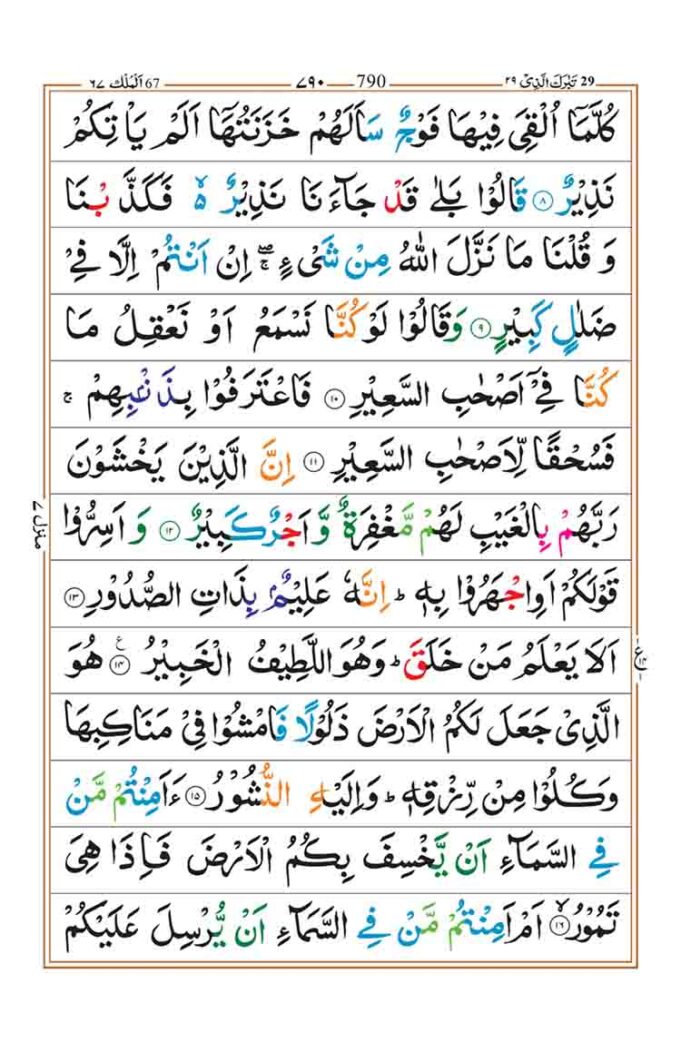 29 تَبٰرَكَ الَّذِىْ ٢٩ 790 ٧٩٠ 67 اَلْمُلْك ٦٧
كُلَّمَاۤ اُلْقِىَ فِيْهَا فَوْجٌ سَاَلَهُمْ خَزَنَتُهَاۤ اَلَمْ يَاْتِكُمْ
نَذِيْرٌ ۸ قَالُوْا بَلٰى قَدْ جَآءَنَا نَذِيْرٌ ۙ فَكَذَّبْنَا
وَ قُلْنَا مَا نَزَّلَ اللّٰهُ مِنْ شَىْءٍ ۖۚ اِنْ اَنْتُمْ اِلَّا فِىْ
ضَلٰلٍ كَبِيْرٍ ۹ وَقَالُوْا لَوْ كُنَّا نَسْمَعُ اَوْ نَعْقِلُ مَا
كُنَّا فِىْۤ اَصْحٰبِ السَّعِيْرِ ۱۰ فَاعْتَرَفُوْا بِذَنْۢبِهِمْ ۚ
فَسُحْقًا لِّاَصْحٰبِ السَّعِيْرِ ۱۱ اِنَّ الَّذِيْنَ يَخْشَوْنَ
رَبَّهُمْ بِالْغَيْبِ لَهُمْ مَّغْفِرَةٌ وَّاَجْرٌ كَبِيْرٌ ۱۲ وَ اَسِرُّوْا
منزل ٧
قَوْلَكُمْ اَوِاجْهَرُوْا بِهٖ ؕ اِنَّهٗ عَلِيْمٌۢ بِذَاتِ الصُّدُوْرِ ۱۳
اَلَا يَعْلَمُ مَنْ خَلَقَ ؕ وَهُوَ اللَّطِيْفُ الْخَبِيْرُ ۱۴ ع هُوَ
الَّذِىْ جَعَلَ لَكُمُ الْاَرْضَ ذَلُوْلًا فَامْشُوْا فِىْ مَنَاكِبِهَا
وَكُلُوْا مِنْ رِّزْقِهٖ ؕ وَاِلَيْهِ النُّشُوْرُ ۱۵ ءَاَمِنْتُمْ مَّنْ
فِى السَّمَآءِ اَنْ يَّخْسِفَ بِكُمُ الْاَرْضَ فَاِذَا هِىَ
تَمُوْرُ ۙ ۱۶ اَمْ اَمِنْتُمْ مَّنْ فِى السَّمَآءِ اَنْ يُّرْسِلَ عَلَيْكُمْ